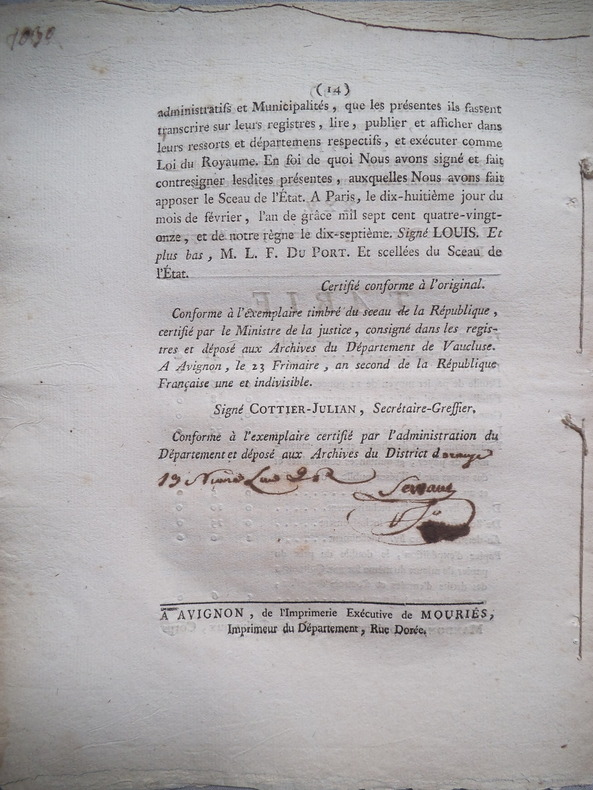 (14)
administratifs et Municipalités, que les présentes ils fassent
transcrire sur leurs registres, lire, publier et afficher dans
leurs ressorts et départemens respectifs, et exécuter comme
Loi du Royaume. En foi de quoi Nous avons signé et fait
contresigner lesdites présentes, auxquelles Nous avons fait
apposer le Sceau de l'État. A Paris, le dix-huitième jour du
mois de février, l'an de grâce mil sept cent quatre-vingt-
onze, et de notre règne le dix-septième. Signé LOUIS. Et
plus bas, M. L. F. DU PORT. Et scellées du Sceau de
l'État.
Certifié conforme à l'original.
Conforme à l'exemplaire timbré du sceau de la République,
certifié par le Ministre de la justice, consigné dans les regis-
tres et déposé aux Archives du Département de Vaucluse.
A Avignon, le 23 Frimaire, an second de la République
Française une et indivisible.
Signé COTTIER-JULIAN, Secrétaire-Greffier.
Conforme à l'exemplaire certifié par l'administration du
Département et déposé aux Archives du District d'orange
19
A AVIGNON, de l'Imprimerie Exécutive de MOURIÈS,
Imprimeur du Département, Rue Dorée.